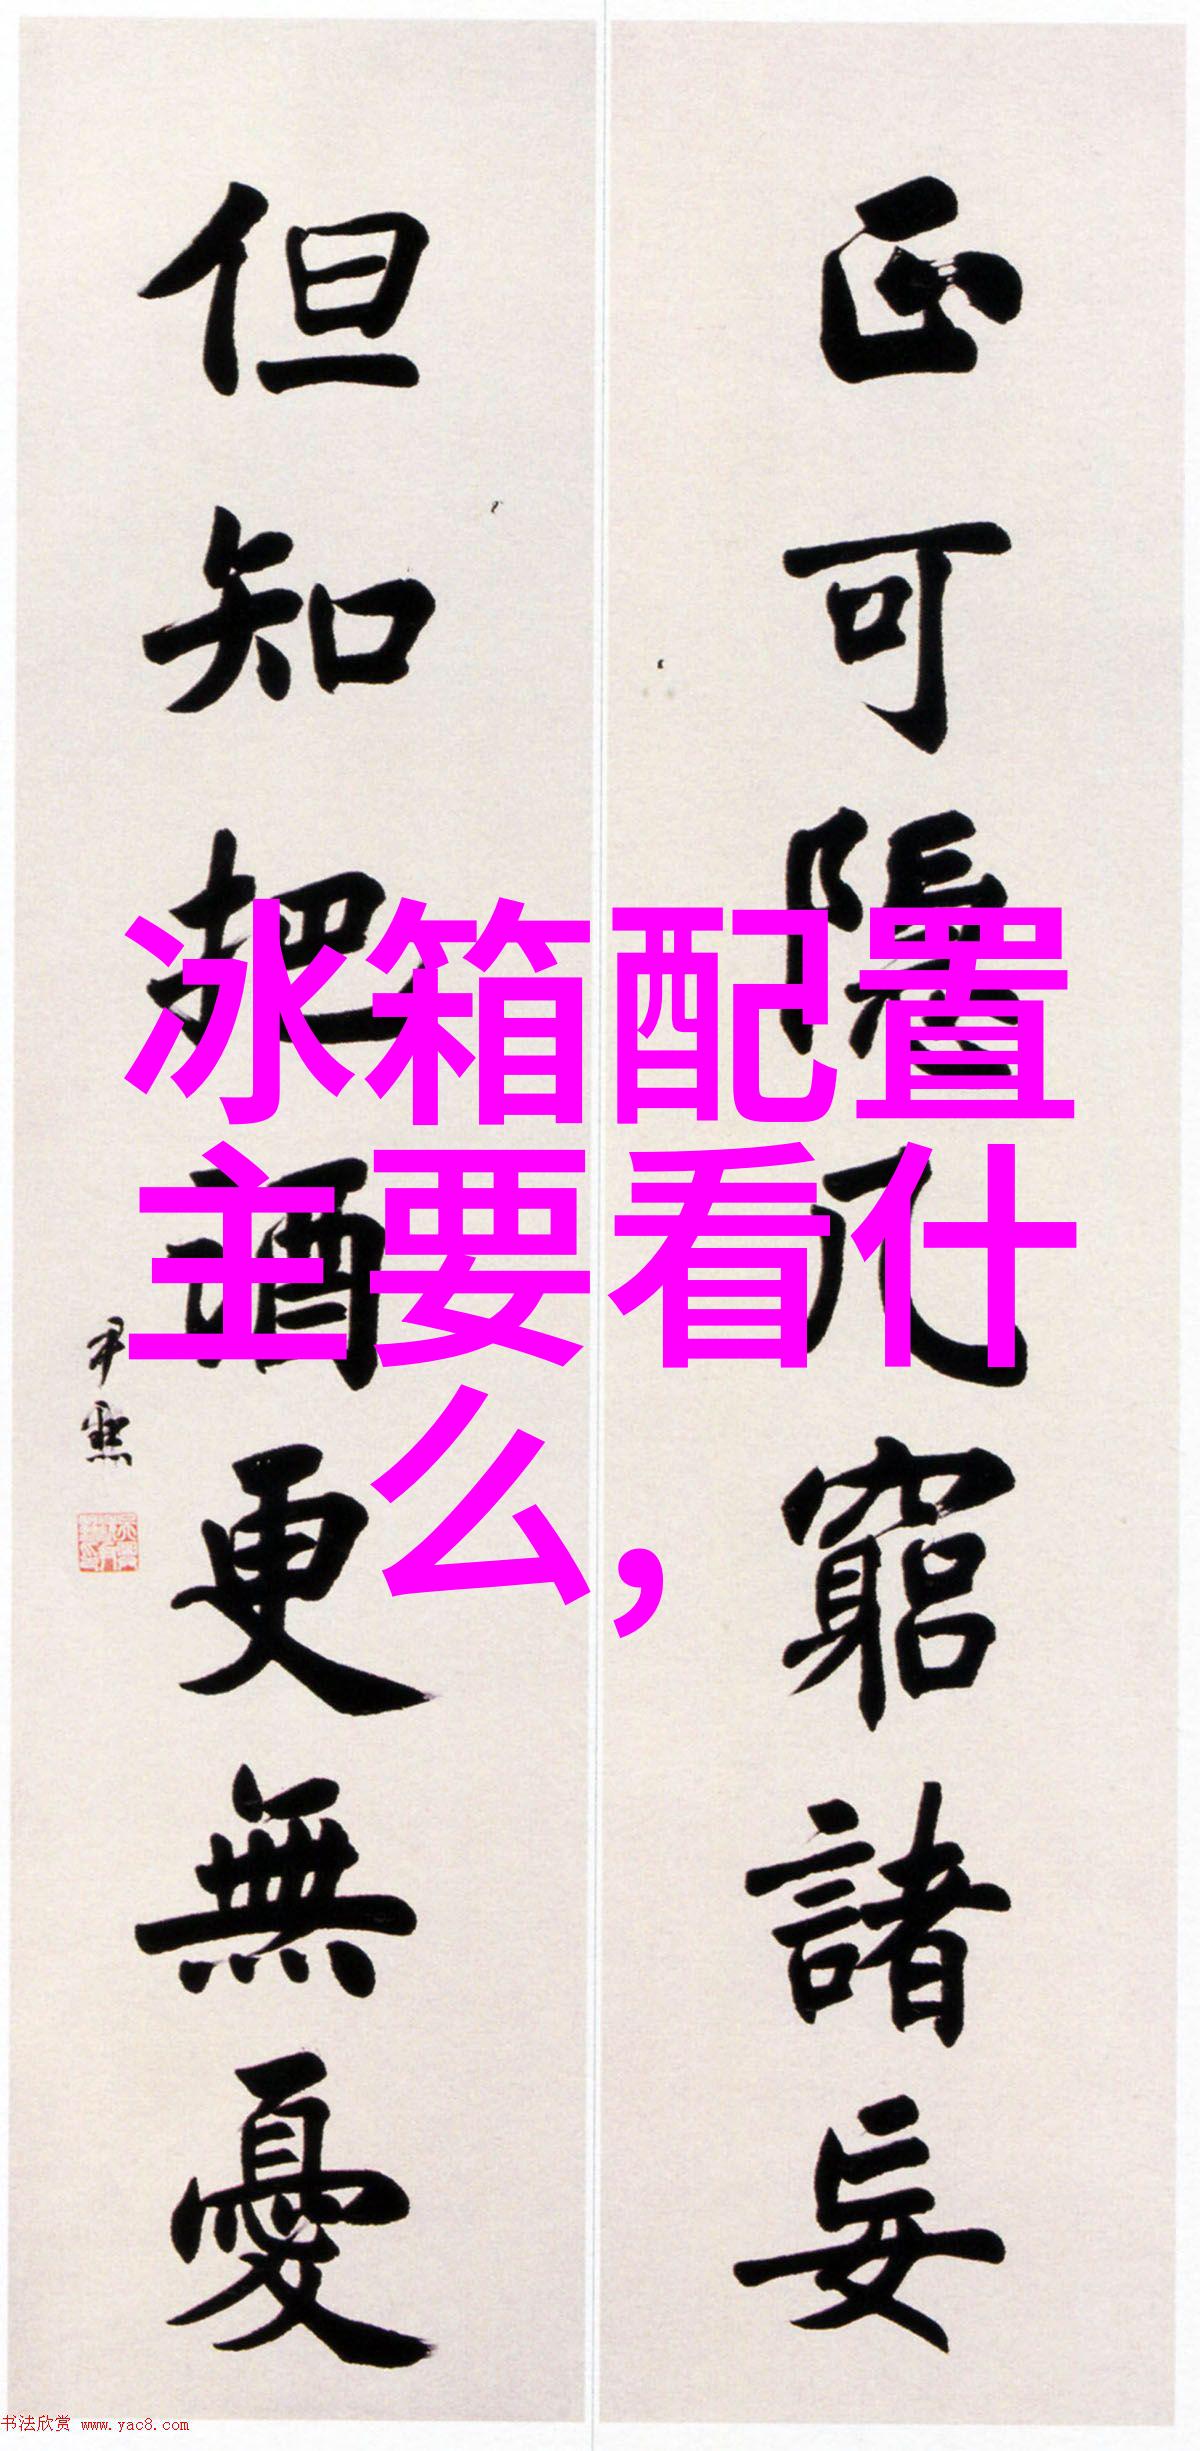 正可隱几竆諸妄
但知把酒更無憂
尹默
冰箱配置
主要看什
么,
书法欣赏 www.yac8.com